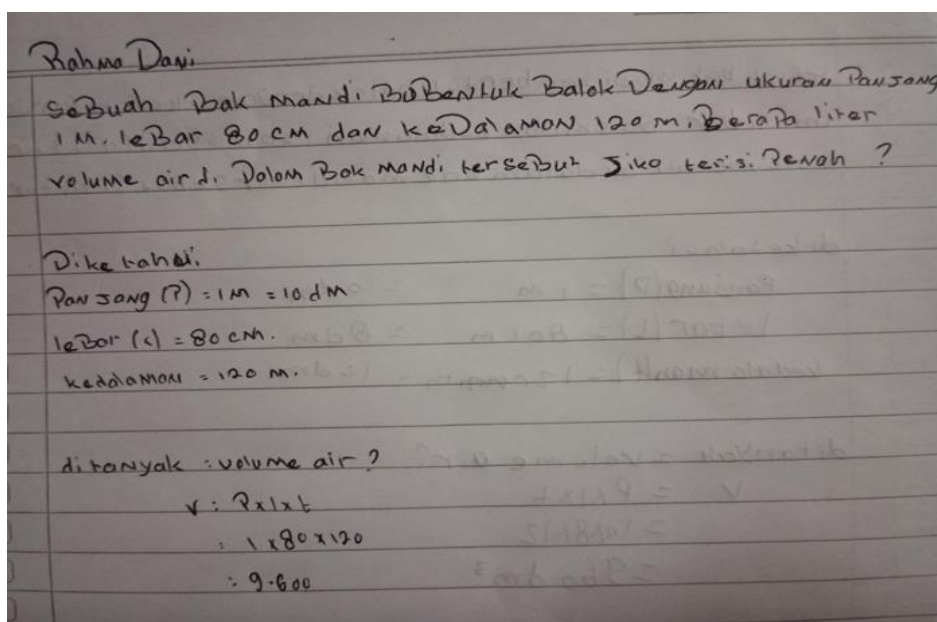 Rahma Dani
SeBuah Bak Mandi BoBentuk Balok Dengan ukuran Panjang
1 M. leBar 80 cm dan keDalamon 120 m. BeraPa liter
volume air di Dalom Bak Mandi terseBut Jika terisi Penoh ?
Diketahui.
Panjang (P) = 1 M = 10 dm
leBar (l) = 80 cm.
kedalamon = 120 m.
ditanyak : volume air ?
V : Pxlxt
: 1 x 80 x 120
: 9.600